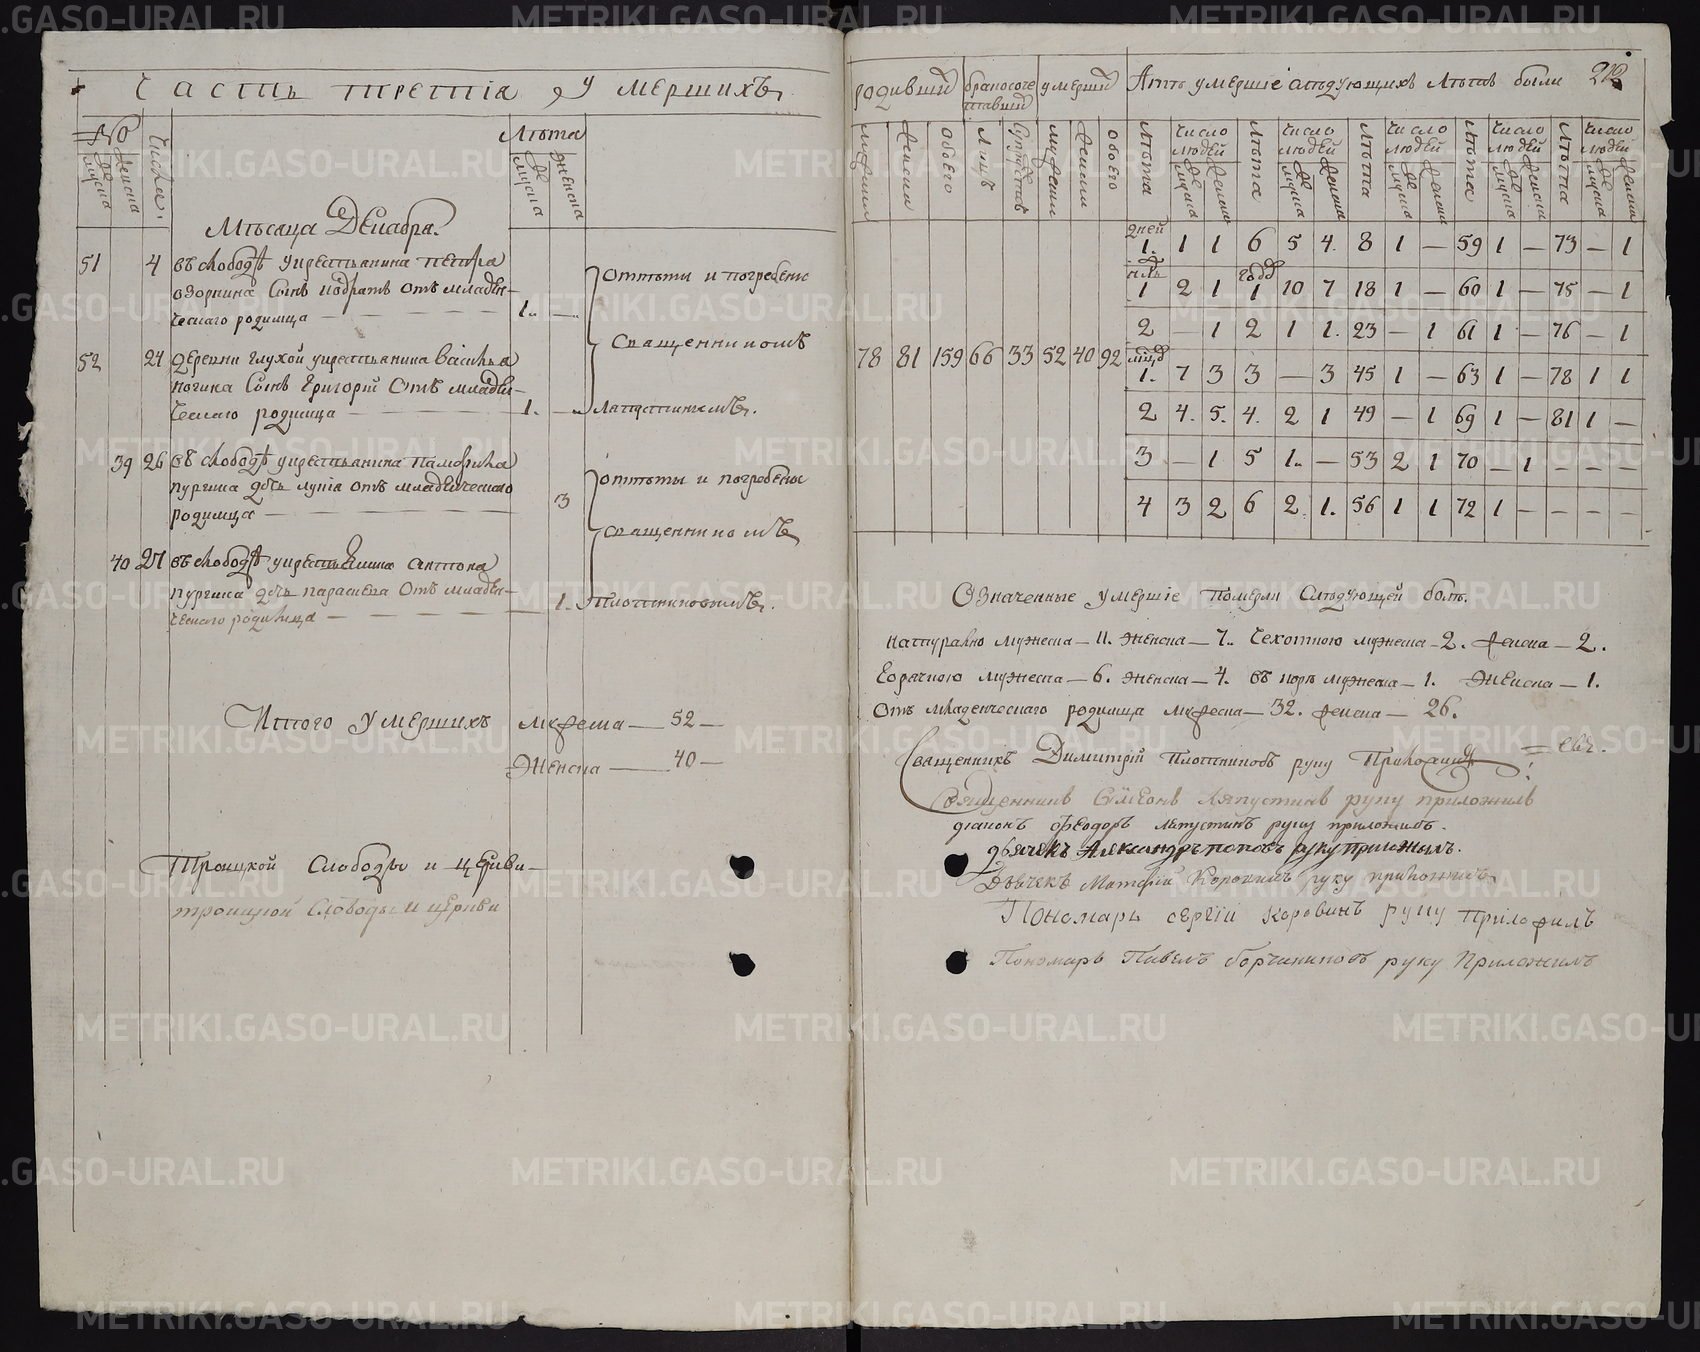 Часть третїя о умершихъ
№
мужеска
женска
Числа
Лѣта
мужеска
женска
Мѣсяца Декабря.
51 4 въ слободѣ у крестьянина петра
сынъ Кодратъ отъ младен-
ческаго родимца 1. —
52 24 деревни глухой у крестьянина василья
сынъ григорїй отъ младен-
ческаго родимца 1. —
39 26 въ слободѣ у крестьянина
пургина дочь отъ младенческаго
родимца 3
40 27 въ слободѣ у крестьянина антона
пургина дочь параскева отъ младен-
ческаго родимца — 1.
отпѣты и погребены
священникомъ
лапустинымъ.
отпѣты и погребены
священникомъ
плотниковымъ.
Итого умершихъ мужеска — 52 —
Женска — 40 —
Троицкой Слободы и церкви
троицкой Слободы и церкви
родивши бракосочетавши умерши Лѣть умершїе слѣдующихъ лѣтъ были 212
мужеска женска обоего лицъ супружествъ мужески женски обоего
Лѣта Число людей мужеска женска Лѣта Число людей мужеска женска Лѣта Число людей мужеска женска Лѣта Число людей мужеска женска Лѣта Число людей мужеска женска
78 81 159 66 33 52 40 92
дней
1. 1 1 6 5 4. 8 1 — 59 1 — 73 — 1
ндль годъ
1 2 1 1 10 7 18 1 — 60 1 — 75 — 1
2 — 1 2 1 1. 23 — 1 61 1 — 76 — 1
мцъ
1. 7 3 3 — 3 45 1 — 63 1 — 78 1 1
2 4. 5. 4. 2 1 49 — 1 69 1 — 81 1 —
3 — 1 5 1. — 53 2 1 70 — 1 — — —
4 3 2 6 2 1. 56 1 1 72 1 — — — —
Означенные умершїе померли слѣдующей болѣ.
натурально мужеска — 11. женска — 7. Чехотною мужеска — 2. женска — 2.
Горячкою мужеска — 6. женска — 4. въ корѣ мужеска — 1. женска — 1.
отъ младенческаго родимца мужеска — 32. женска — 26.
Священникъ Димитрїй Плотниковъ руку Приложилъ
Священникъ Сѵмеонъ Лапустинъ руку приложилъ
дїаконъ Ѳеодоръ лапустинъ руку приложилъ.
дьячекъ Александръ поповъ руку приложилъ.
Дьячекъ Матфїй Коровинъ руку приложилъ
Пономарь сергїй Коровинъ руку приложилъ
Пономарь Павелъ Борчаниновъ руку приложилъ
METRIKI.GASO-URAL.RU